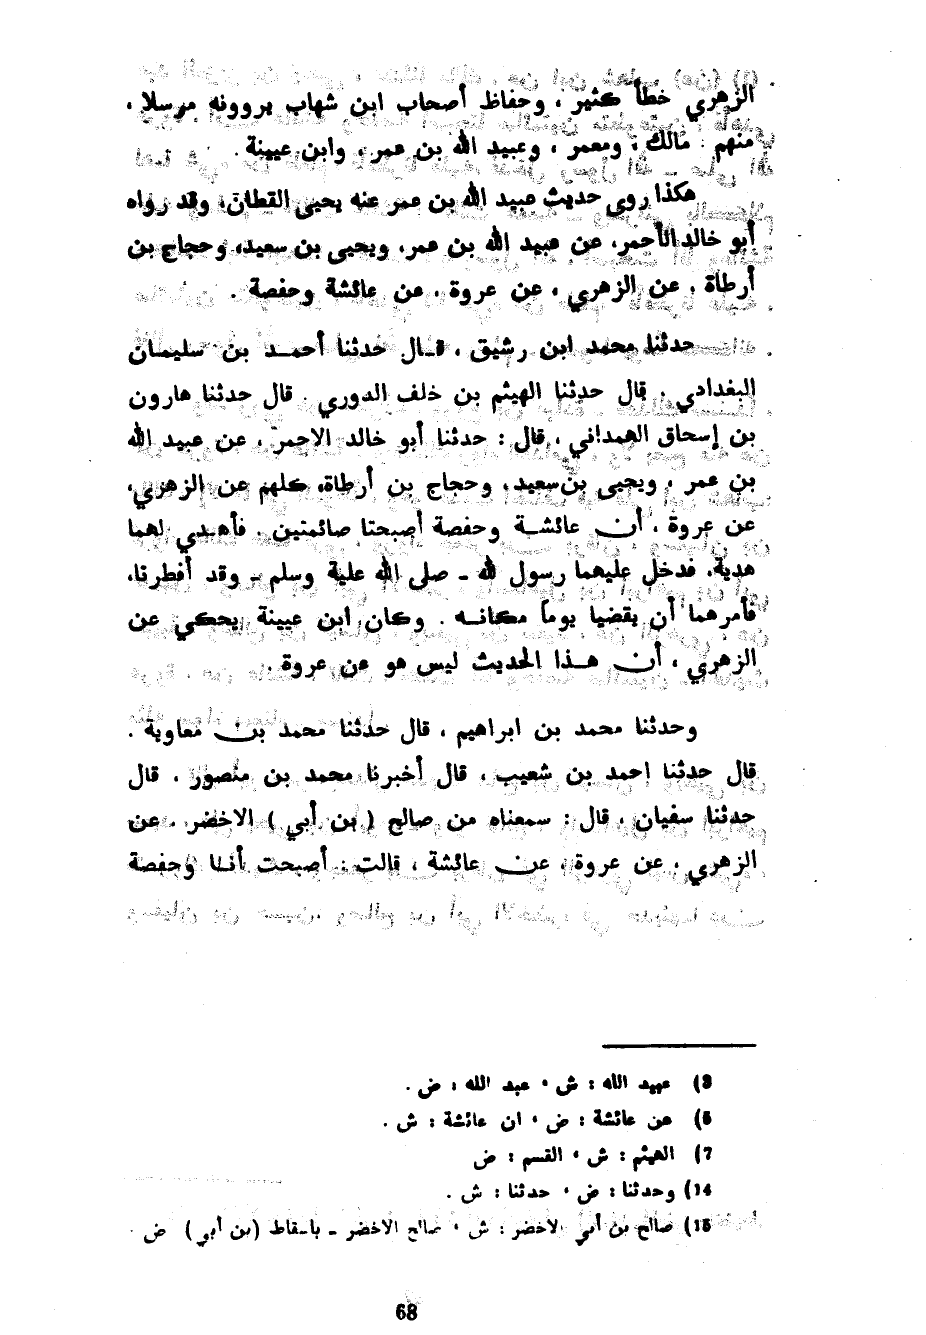 الزهري خطأ كثير ، وحفاظ أصحاب ابن شهاب يروونه مرسلا ،
منهم : مالك ، ومعمر ، وعبيد الله بن عمر ، وابن عيينة .
هكذا روى حديث عبيد الله بن عمر عنه يحيى القطان، وقد رواه
أبو خالد الأحمر، عن عبيد الله بن عمر، ويحيى بن سعيد، وحجاج بن
أرطاة ، عن الزهري ، عن عروة ، عن عائشة وحفصة .
حدثنا محمد ابن رشيق ، قـال حدثنا أحمـد بن سليمـان
البغدادي . قال حدثنا الهيثم بن خلف الدوري . قال حدثنا هارون
بن إسحاق الهمداني ، قال : حدثنا أبو خالد الاحمر ، عن عبيد الله
بن عمر ، ويحيى بن سعيد، وحجاج بن أرطاة، كلهم عن الزهري،
عن عروة ، أن عائشـة وحفصة أصبحتا صائمتين . فأهـدي لهما
هدية، فدخل عليهما رسول لله ـ صلى الله علية وسلم ـ وقد أفطرنا،
فأمرهما أن يقضيا يوماً مكانـه . وكان ابن عيينة يحكي عن
الزهري ، أن هـذا الحديث ليس هو عن عروة .
وحدثنا محمد بن ابراهيم ، قال حدثنا محمد بن معاوية .
قال حدثنا احمد بن شعيب ، قال أخبرنا محمد بن منصور . قال
حدثنا سفيان ، قال : سمعناه من صالح ( بن أبي ) الاخضر . عن
الزهري ، عن عروة ، عن عائشة ، قالت : أصبحت أنـا وحفصة
3) عبيد الله : ش ، عبد الله : ض .
6) عن عائشة : ض ، ان عائشة : ش .
7) الهيثم : ش ، القسم : ض
14) وحدثنا : ض ، حدثنا : ش .
16) صالح بن أبي الاخضر : ش ، صالح الاخضر ـ باسقاط (بن أبي) ض .
68